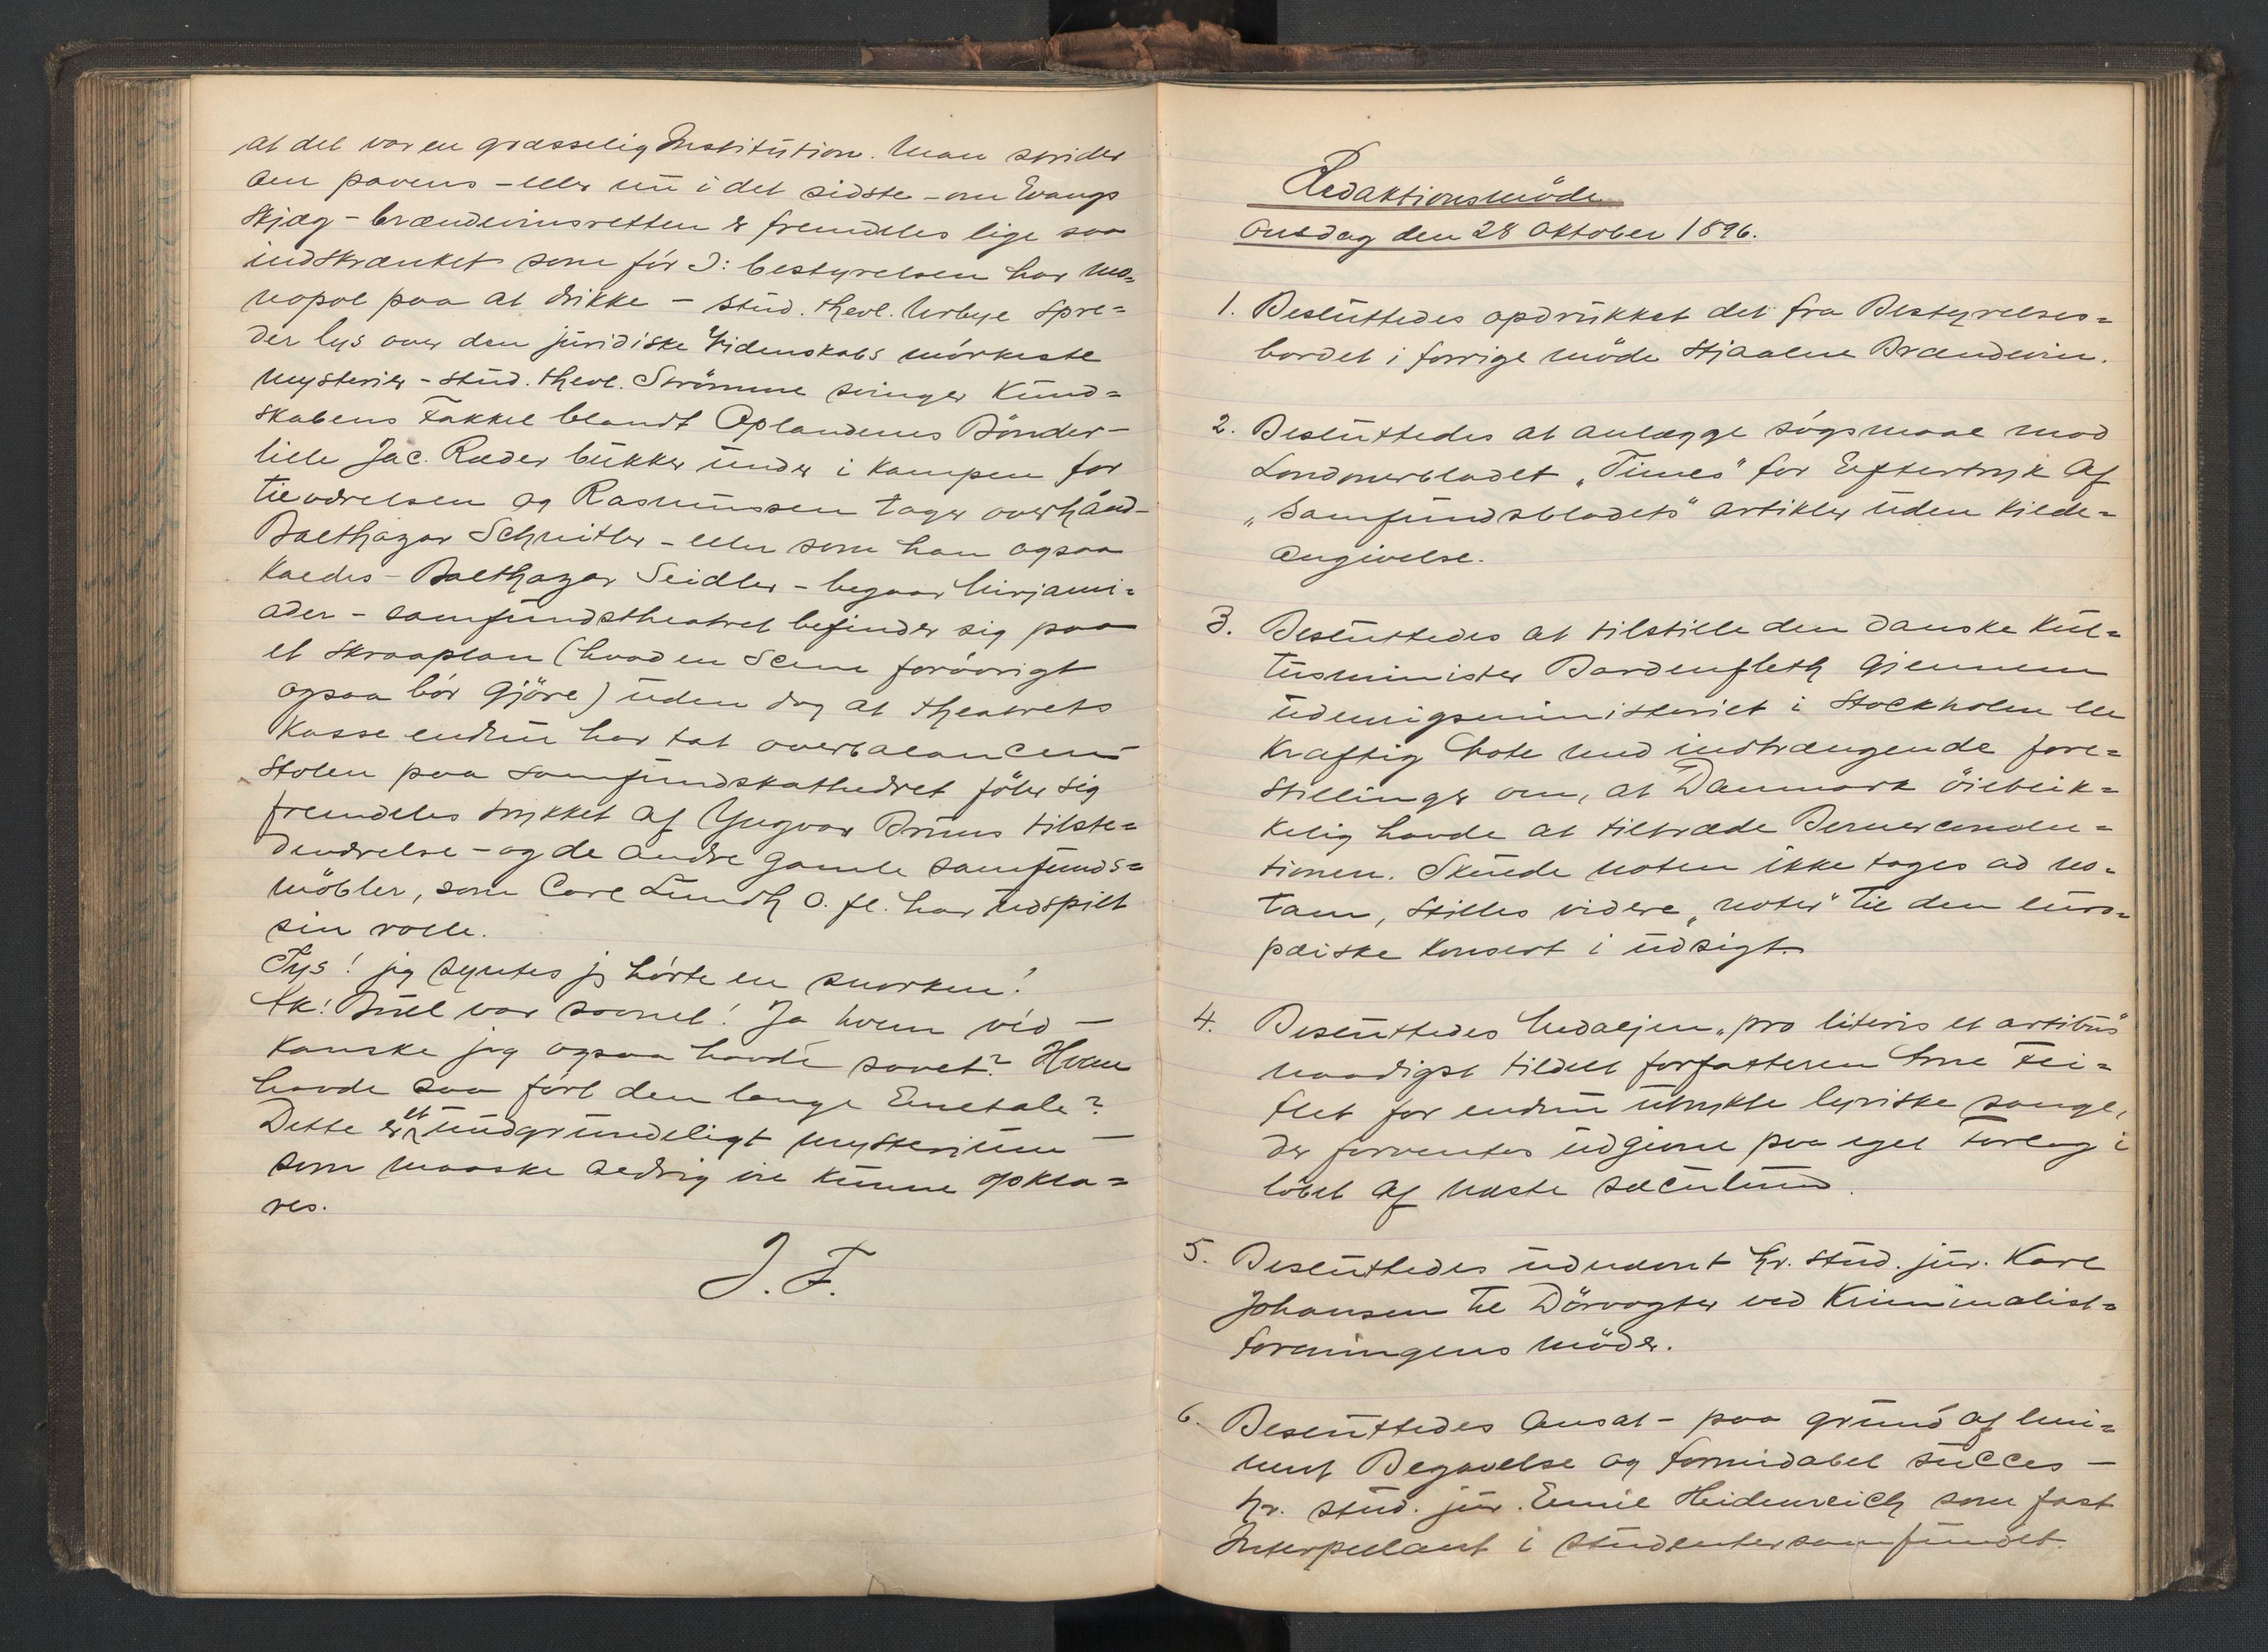 at det var en græsselig Institution. Man strider
om pavens - eller nu i det sidste - om Evangs
Skjæg - brændevinsretten er fremdeles lige saa
indskrænket som før ɔ: bestyrelsen har mo-
nopol paa at drikke - stud. theol. Urbye spre-
der lys over den juridiske Videnskabs mørkeste
Mysterier - stud. theol. Strömme svinger Kund-
skabens Fakkel blandt Oplandenes Bönder -
lille Jac. Ræder bukker under i kampen for
tilværelsen og Rasmussen tager overhånd -
Balthazar Schnitler - eller som han ogsaa
kaldes - Balthazar Seidler - begaar Mirjami-
ader - samfundstheatret befinder sig paa
et skraaplan (hvad en Scene forövrigt
ogsaa bör gjöre) uden dog at theatrets
Kasse endnu har tat overbalancen -
Stolen paa Samfundskathedret föler sig
fremdeles trykket af Yngvar Bruns tilste-
deværelse - og de andre gamle samfunds-
möbler, som Carl Lundh o. fl. har udspilt
sin rolle.
Tys! jeg syntes jeg hörte en snorken!
Ak! Bull var sovnet! Ja hvem véd -
Kanske jeg ogsaa havde sovet? Hvem
havde saa fört den lange Enetale?
Dette er et uudgrundeligt mysterium -
som maaske aldrig vil kunne opkla-
res.
J. F.
Redaktionsmöde
Onsdag den 28 Oktober 1896.
1. Besluttedes opdrukket det fra Bestyrelses-
bordet i forrige möde stjaalne Brændevin.
2. Besluttedes at anlægge sögsmaal mod
Londonerbladet "Times" for Eftertryk af
"Samfundsbladets" artikler uden Kilde-
angivelse.
3. Besluttedes at tilstille den danske Kul-
tusminister Bardenfleth gjennem
udenrigsministeriet i Stockholm en
kraftig Note med indtrængende fore-
stillinger om, at Danmark öieblik-
kelig havde at tiltræde Bernerconven-
tionen. Skulde noten ikke tages ad no-
tam, stilles videre "noter" til den euro-
pæiske Konsert i udsigt.
4. Besluttedes Medaljen "pro literis et artibus"
naadigst tildelt forfatteren Arne Fei-
let for endnu utrykte lyriske sange,
der forventes udgivne paa eget Forlag i
löbet af næste sæculum.
5. Besluttedes udnævnt hr. stud. jur. Karl
Johansen til Dörvogter ved Kriminalist-
foreningens möder.
6. Besluttedes ansat - paa grund af emi-
nent Begavelse og formidabel succes -
hr. stud. jur. Emil Heidenreich som fast
Interpellant i Studentersamfundet.